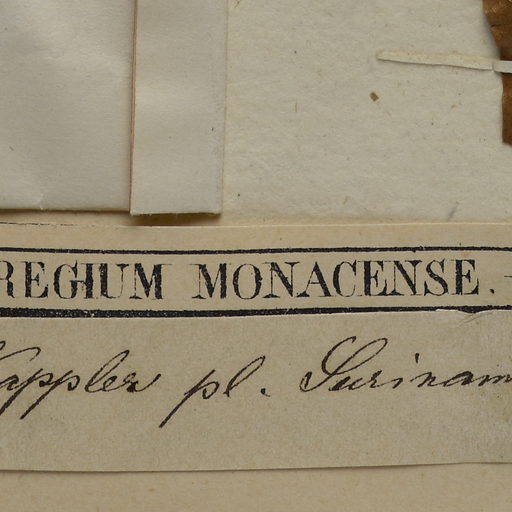 REGIUM MONACENSE.
Kappler pl. Surinam